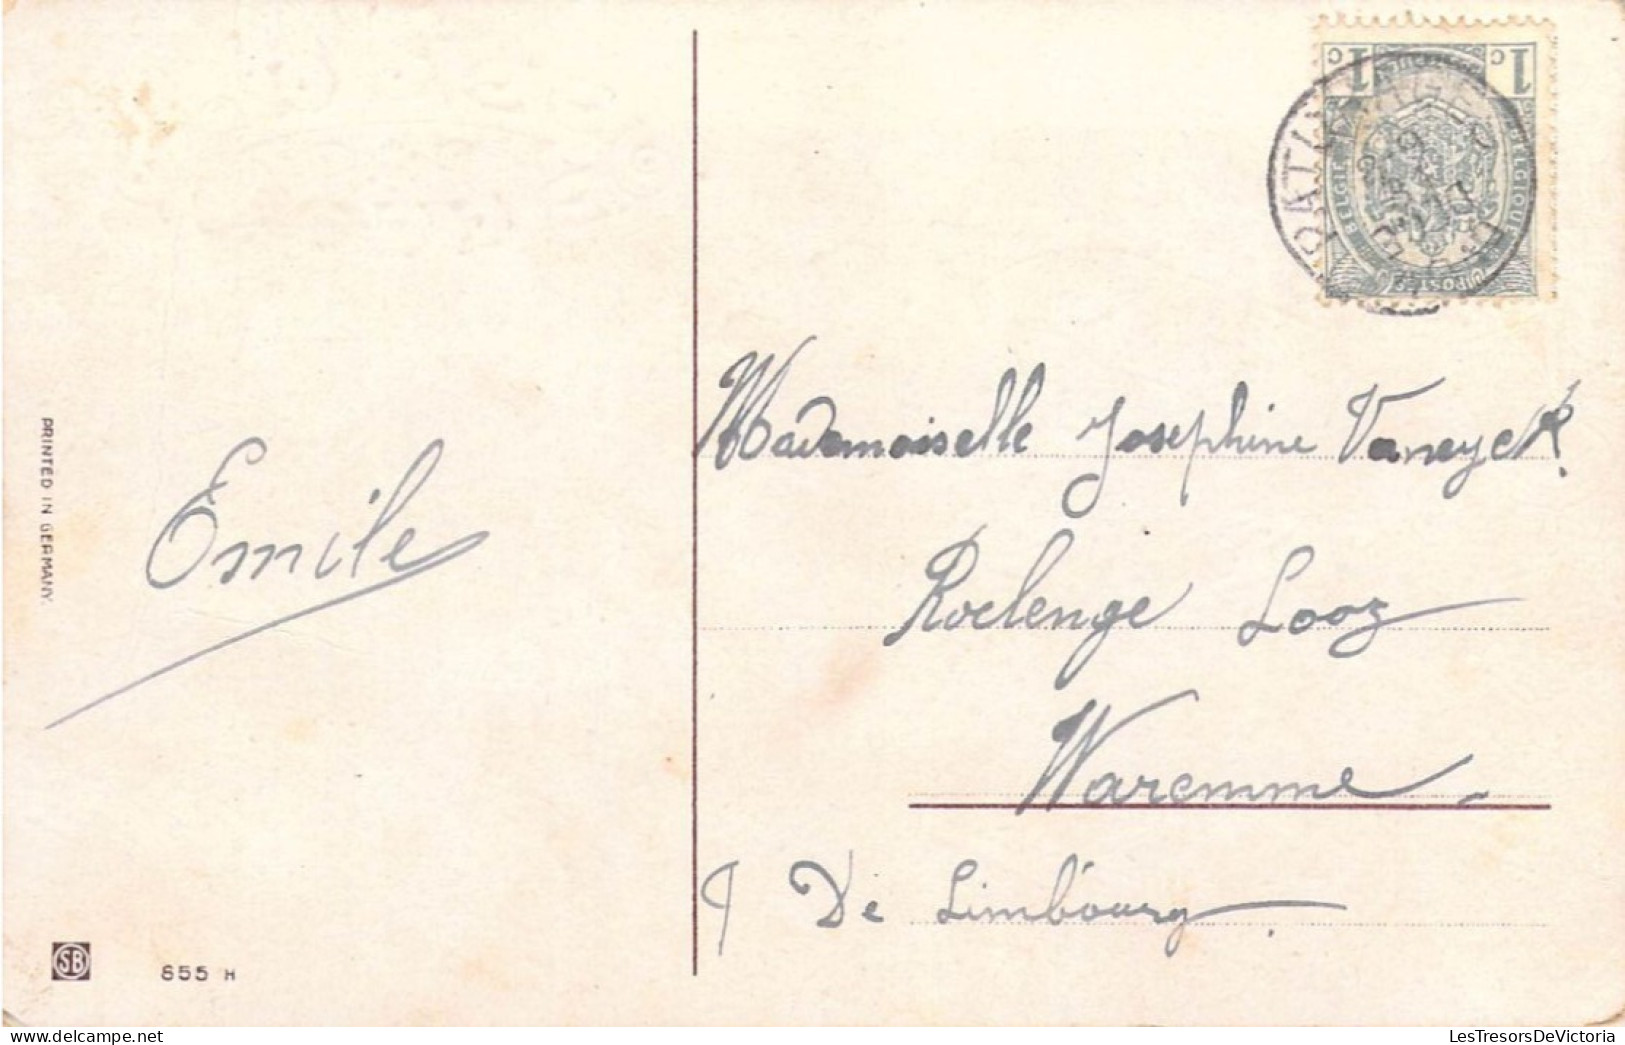 1 c 1 c
BELGIË BELGIQUE
POSTES
Mademoiselle Josephine Vaneyck.
Roclenge Looz
Waremme
De Limbourg
Emile
PRINTED IN GERMANY.
SB
655 H
delcampe.net
LesTresorsDeVictoria